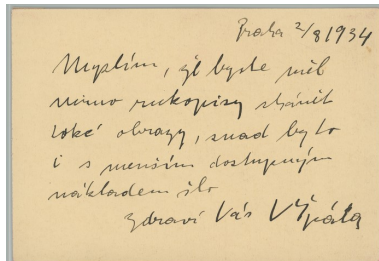 Praha 2/8 1934
Myslím, že byste měl
mimo rukopisy sháněti
také obrazy, snad by to
i s menším dostupným
nákladem šlo
Zdraví Vás